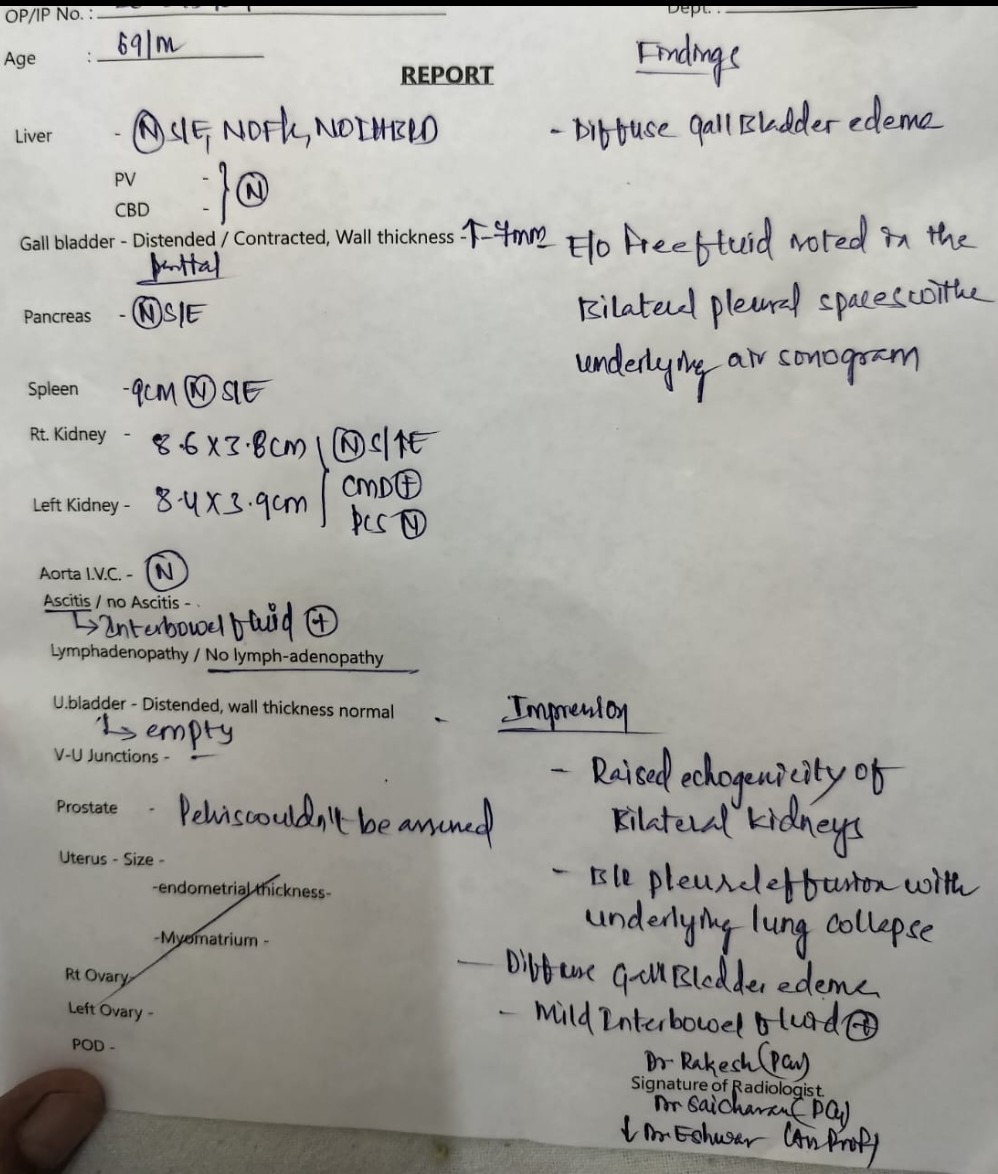 OP/IP No. :
Dept. :
Age : 69/m
REPORT
Liver - Ⓝ S/E, NOFL, NOIHBRD
PV -
CBD - } Ⓝ
Gall bladder - Distended / Contracted, Wall thickness - ↑-4mm
partial
Pancreas - Ⓝ S/E
Spleen - 9cm Ⓝ S/E
Rt. Kidney - 8.6 X 3.8cm Ⓝ S/↑E
CMD ⊕
Left Kidney - 8.4 X 3.9cm
PCS Ⓝ
Aorta I.V.C. - Ⓝ
Ascitis / no Ascitis -
↳ Interbowel fluid ⊕
Lymphadenopathy / No lymph-adenopathy
U.bladder - Distended, wall thickness normal
↳ empty
V-U Junctions - -
Prostate - Pelvis couldn't be assessed
Uterus - Size -
-endometrial thickness-
-Myomatrium -
Rt Ovary
Left Ovary -
POD -
Findings
- Diffuse Gall Bladder edema
E/o free fluid noted in the
Bilateral pleural spaces with
underlying air sonogram
Impression
- Raised echogenicity of
Bilateral kidneys
- B/l pleural effusion with
underlying lung collapse
- Diffuse Gall Bladder edema
- Mild Interbowel fluid ⊕
Dr Rakesh (PG)
Signature of Radiologist
Dr Saicharan (PG)
↓ Dr Eshwar (As Prof)